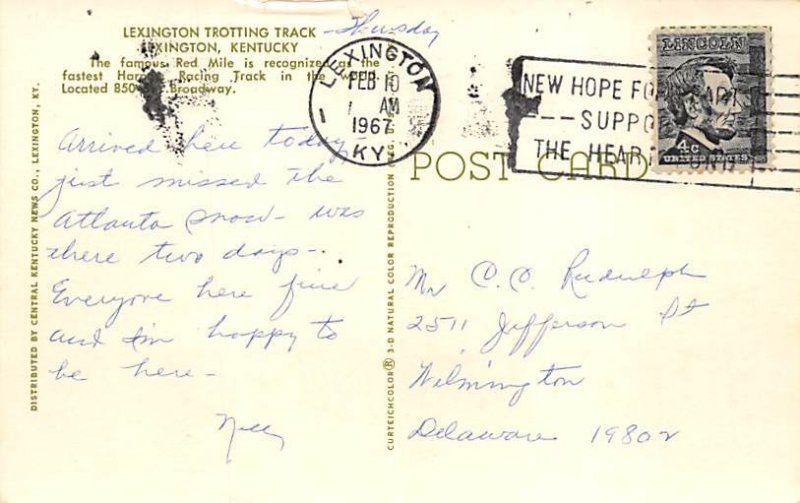 LEXINGTON TROTTING TRACK
LEXINGTON, KENTUCKY
The famous Red Mile is recognized as the
fastest Harness Racing Track in the world.
Located 850 Broadway.
Thursday
Arrived here today
just missed the
Atlanta snow - was
there two days -
Everyone here fine
and I'm happy to
be here -
Nell
DISTRIBUTED BY CENTRAL KENTUCKY NEWS CO., LEXINGTON, KY.
CURTEICHCOLOR® 3-D NATURAL COLOR REPRODUCTION
LEXINGTON
FEB 10
AM
1967
KY.
NEW HOPE FOR HEARTS
SUPPORT
THE HEART FUND
LINCOLN
4¢
UNITED STATES
POST CARD
Mr C. C. Rudulph
2511 Jefferson St
Wilmington
Delaware 19802